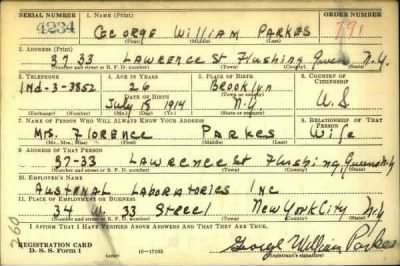 SERIAL NUMBER 1. NAME (Print) ORDER NUMBER
4234 GEORGE WILLIAM PARKES 791
(First) (Middle) (Last)
2. ADDRESS (Print)
37-33 LAWRENCE ST Flushing Queens N.Y.
(Number and street or R. F. D. number) (Town) (County) (State)
3. TELEPHONE 4. AGE IN YEARS 5. PLACE OF BIRTH 6. COUNTRY OF CITIZENSHIP
Ind-3-3852 26 Brooklyn
DATE OF BIRTH
July 15 1914 N.Y. U.S
(Exchange) (Number) (Mo.) (Day) (Yr.) (State or country)
7. NAME OF PERSON WHO WILL ALWAYS KNOW YOUR ADDRESS 8. RELATIONSHIP OF THAT PERSON
Mrs. Florence Parkes Wife
(Mr., Mrs., Miss) (First) (Middle) (Last)
9. ADDRESS OF THAT PERSON
37-33 LAWRENCE ST Flushing Queens N.Y.
(Number and street or R. F. D. number) (Town) (County) (State)
10. EMPLOYER'S NAME
AUSTENAL LABORATORIES INC
11. PLACE OF EMPLOYMENT OR BUSINESS
34 W 33 Street New York City N.Y
(Number and street or R. F. D. number) (Town) (County) (State)
I AFFIRM THAT I HAVE VERIFIED ABOVE ANSWERS AND THAT THEY ARE TRUE.
260
REGISTRATION CARD
D. S. S. Form 1 16-17105 George William Parkes
(Registrant's signature)